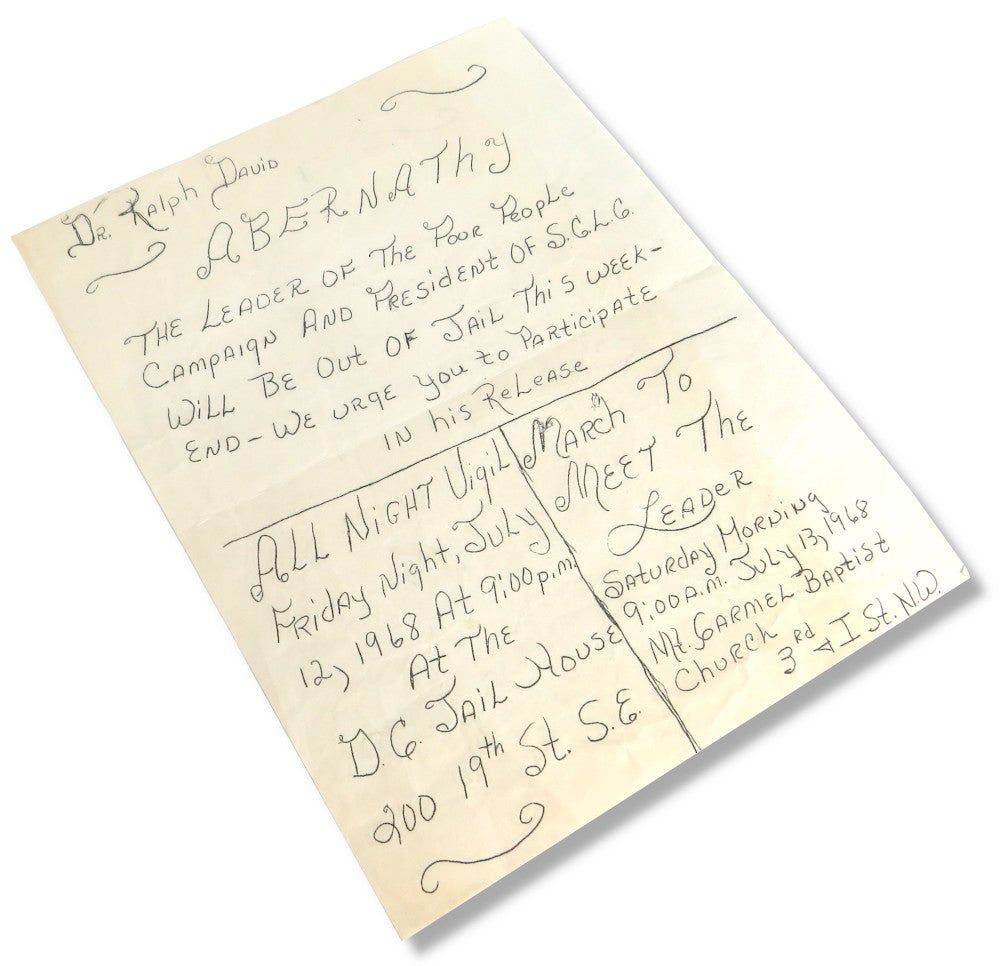 Dr. Ralph David
ABERNATHY
THE LEADER OF The Poor People
Campaign And President OF S.C.L.C.
Will Be Out OF Jail This week-
END - We urge you to Participate
in his Release
All Night Vigil
Friday Night, July
12, 1968 At 9:00 p.m.
At The
D.C. Jail House
200 19th St. S.E.
March To
Meet The
Leader
Saturday Morning
9:00 A.M. July 13, 1968
Mt. Carmel Baptist
Church 3rd & I St. N.W.